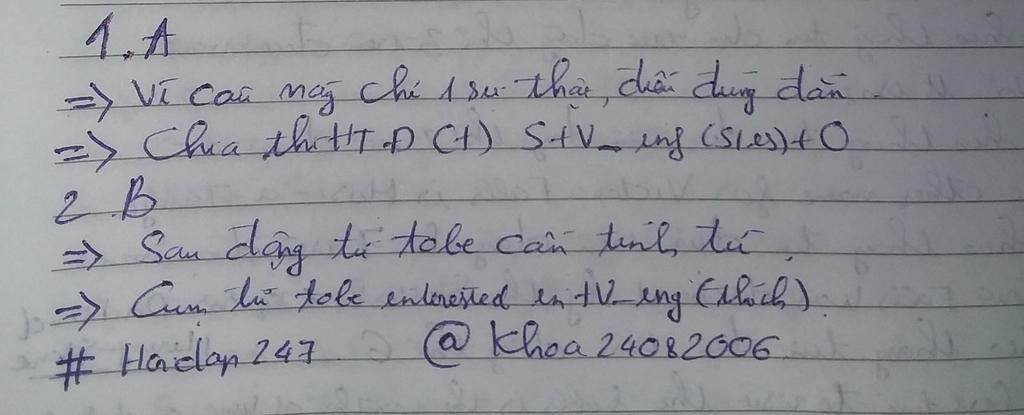 1. A
=> Vì câu này chỉ 1 sự thật, điều đúng đắn.
=> Chia thì HTĐ (+) S+V_ing (s/es)+O
2 B
=> Sau động từ tobe cần tính từ.
=> Cụm từ tobe interested in +V_ing (thích).
# Hoidap 247 @ Khoa24082006